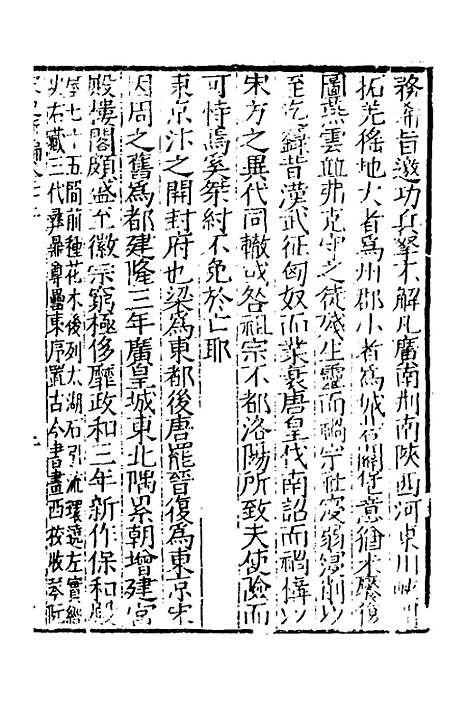 務希旨邀功兵拏不解凡廣南荆南陝西河東川峽
拓羌徭地大者爲州郡小者爲城砦關堡意猶未饜復
圖燕雲並弗克守之徒殘生靈而禍宗社寖弱寖削以
至淪籍昔漢武征匈奴而業衰唐皇伐南詔而禍搆以
宋方之異代同轍或咎祖宗不都洛陽所致夫使險而
可恃焉奚桀紂不免於亡耶
東京汴之開封府也梁爲東都後唐罷晉復爲東京宋
因周之舊爲都建隆三年廣皇城東北隅累朝增建宮
殿樓閣頗盛至徽宗窮極侈靡政和三年新作保和殿
屋七十五間前種花木後列太湖石引流環遶左實經
史右藏三代彝鼎尊罍東序置古今書畫西莜收琴阮